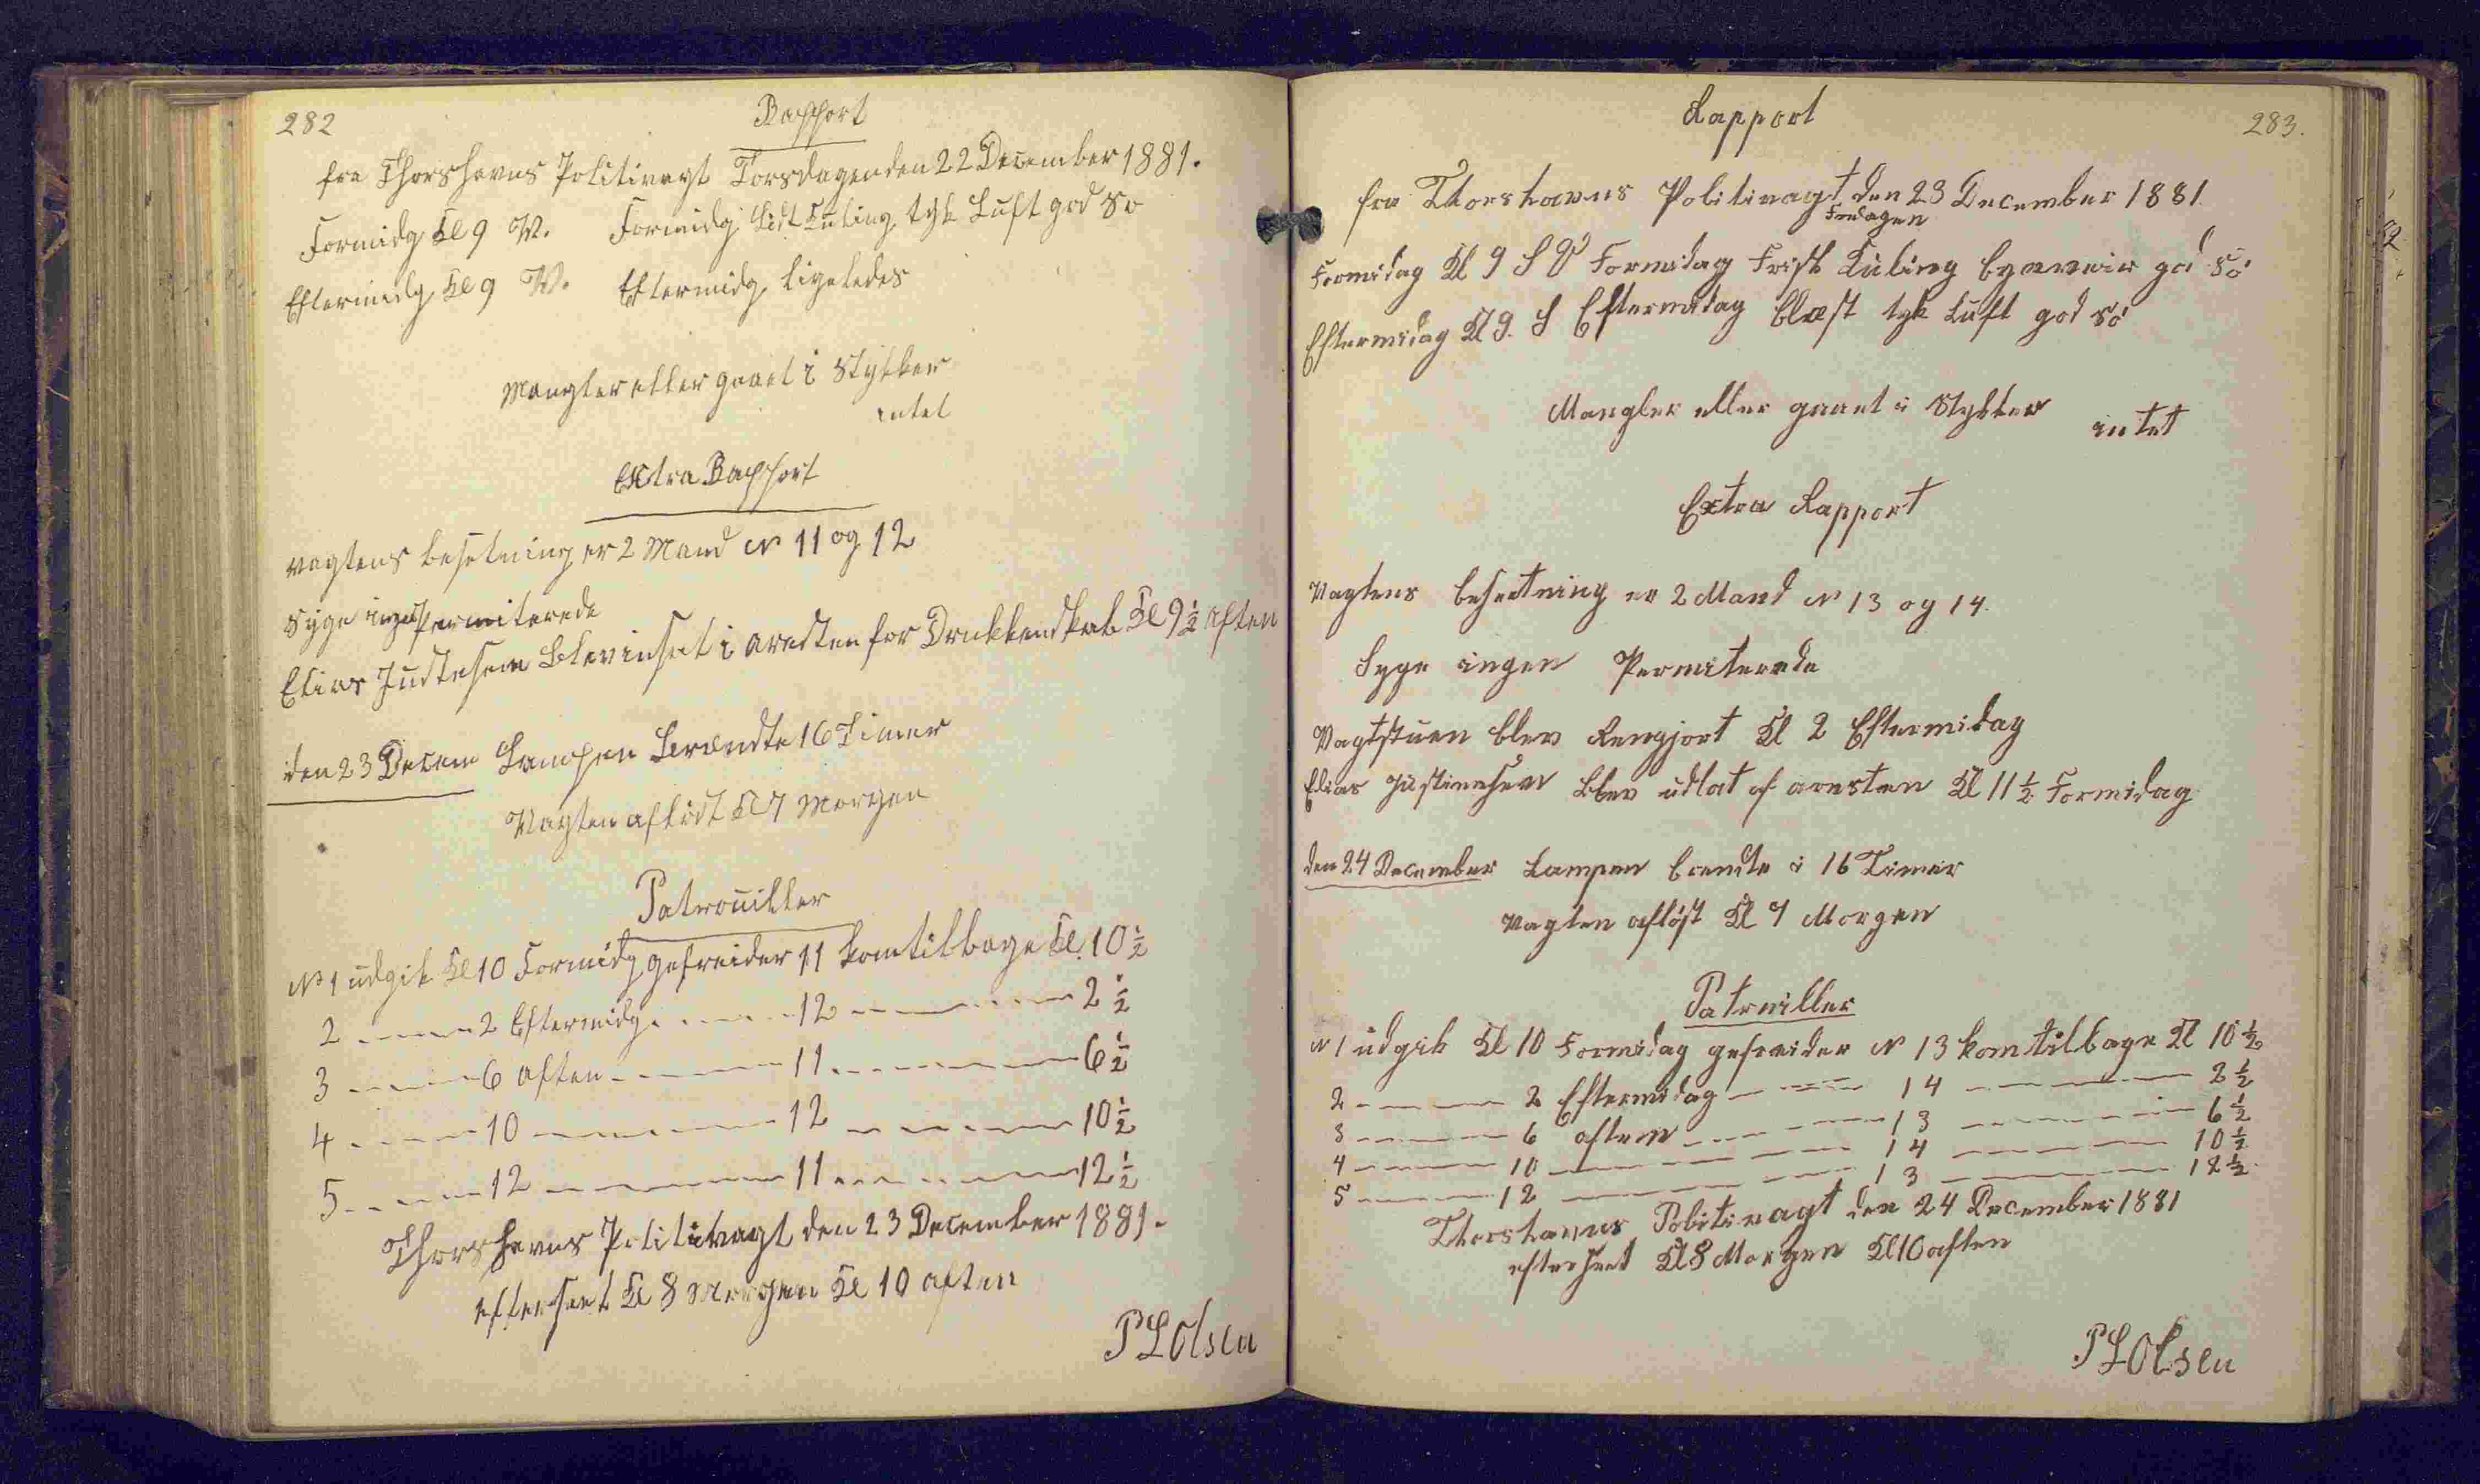 282
Rapport
fra Thorshavns Politivagt Torsdagen den 22 December 1881.
Formidg Kl 9 W. Formidg List Kuling tyk Luft god So
Eftermidg Kl 9 W. Eftermidg ligeledes
Mangler eller gaaet i Stykker
intet
Extra Rapport
vagtens besetning er 2 Mand N 11 og 12
Syge ingen Permiterede
Elias Justesen blev insat i aresten for Drukkenskab Kl 9 1/2 Aften
den 23 Decem Lampen brændte 16 Timer
Vagten afløst Kl 7 Morgen
Patrouiller
No 1 udgik Kl 10 Formidg gefreider 11 kom tilbage Kl. 10 1/2
2 2 Eftermidg. 12 2 1/2
3 6 aften 11 6 1/2
4 10 12 10 1/2
5 12 11 12 1/2
Thorshavns Politivagt den 23 December 1881.
efterseet Kl 8 Morgen Kl 10 aften
P L Olsen
Rapport
283.
fra Thorshavns Politivagt den 23 December 1881
Fredagen
Formidag Kl 9 S V Formidag Frisk Kuling god Sö
Eftermidag Kl 9. S Eftermidag blæst tyk Luft god sö
Mangler eller gaaet i Stykker
intet
Extra Rapport
Vagtens besætning er 2 Mand N 13 og 14.
Syge ingen Permiterede
Vagtstuen blev Rengjort Kl 2 Eftermidag
Elias Justinesen blev udlat af aresten Kl 11 1/2 Formidag
den 24 December Lampen brendte i 16 Timer
Vagten afløst Kl 7 Morgen
Patruiller
N 1 udgik Kl 10 Formidag gefreider N 13 kom tilbage Kl 10 1/2
2 2 Eftermidag 14 2 1/2
3 6 aften 13 6 1/2
4 10 14 10 1/2
5 12 13 12 1/2
Thorshavns Politivagt den 24 December 1881
efterseet Kl 8 Morgen Kl 10 aften
P L Olsen